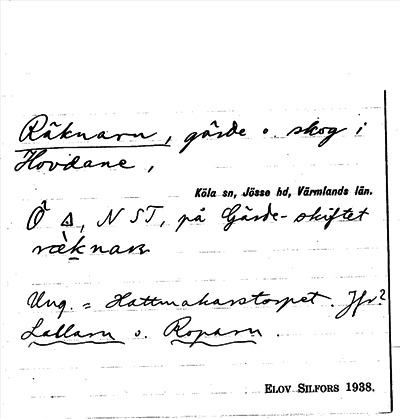 Räknarn, gärde o. skog i
Hovdane,
Köla sn, Jösse hd, Värmlands län.
Ö Δ, N ST, på Gärde-skiftet
Ung. = Hattmakarstorpet. Jfr?
Lallarn o. Roparn.
ELOV SILFORS 1938.